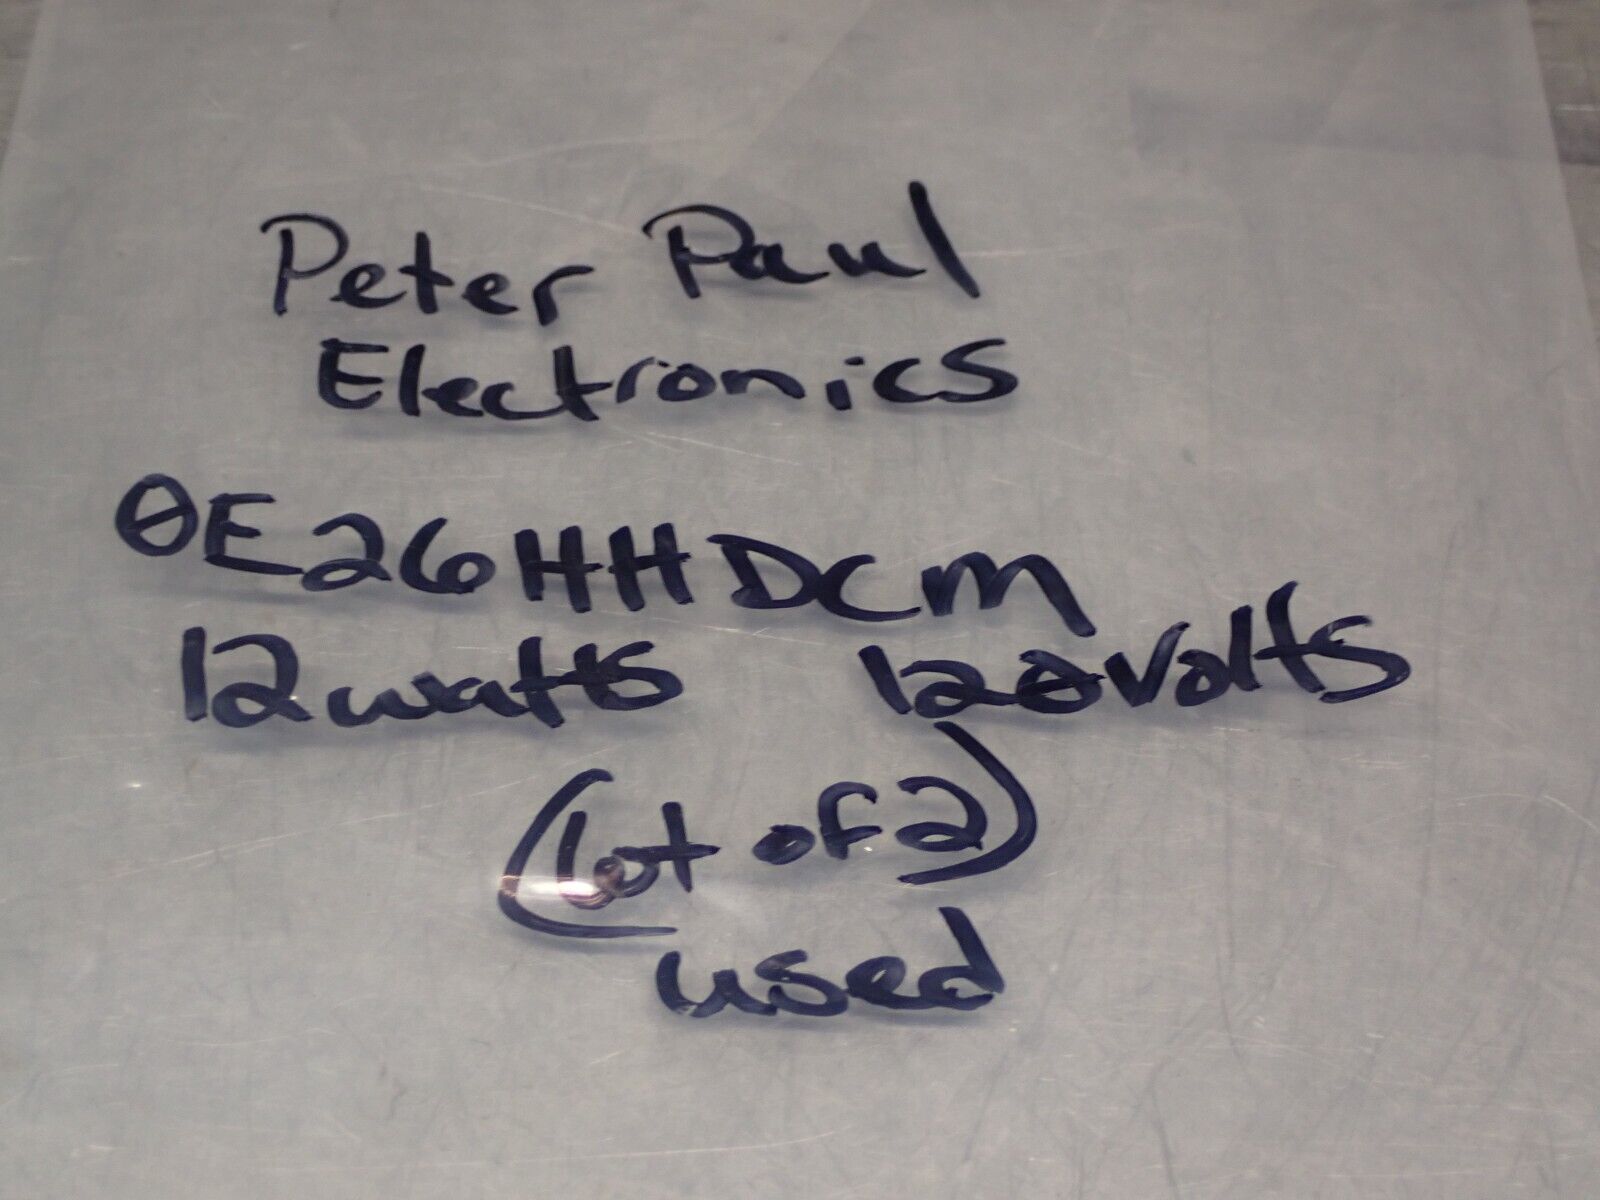 Peter Paul
Electronics
0E26HHDCM
12watts 120Volts
(lot of 2)
used